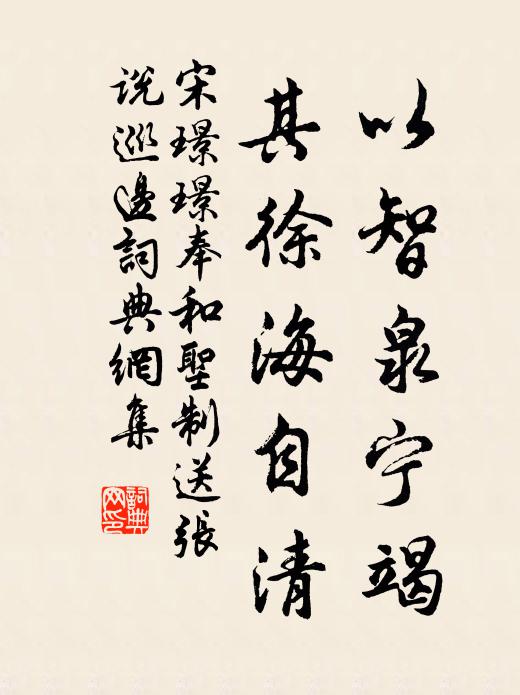 以智泉宁竭
其徐海自清
宋璟璟奉和聖制送張
說巡邊詞典網集
詞典网印